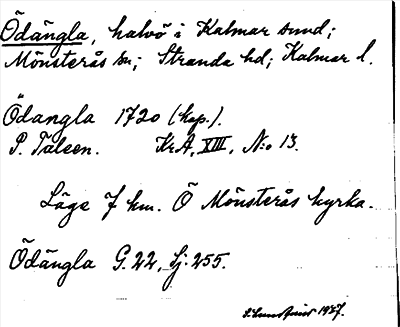 Ödängla, halvö i Kalmar sund;
Mönsterås sn; Stranda hd; Kalmar l.
Ödangla 1720 (kop.).
P. Taleen. KrA, XIII, N:o 13.
Läge 7 km. Ö Mönsterås kyrka.
Ödängla G. 22, Sj: 255.
1927.